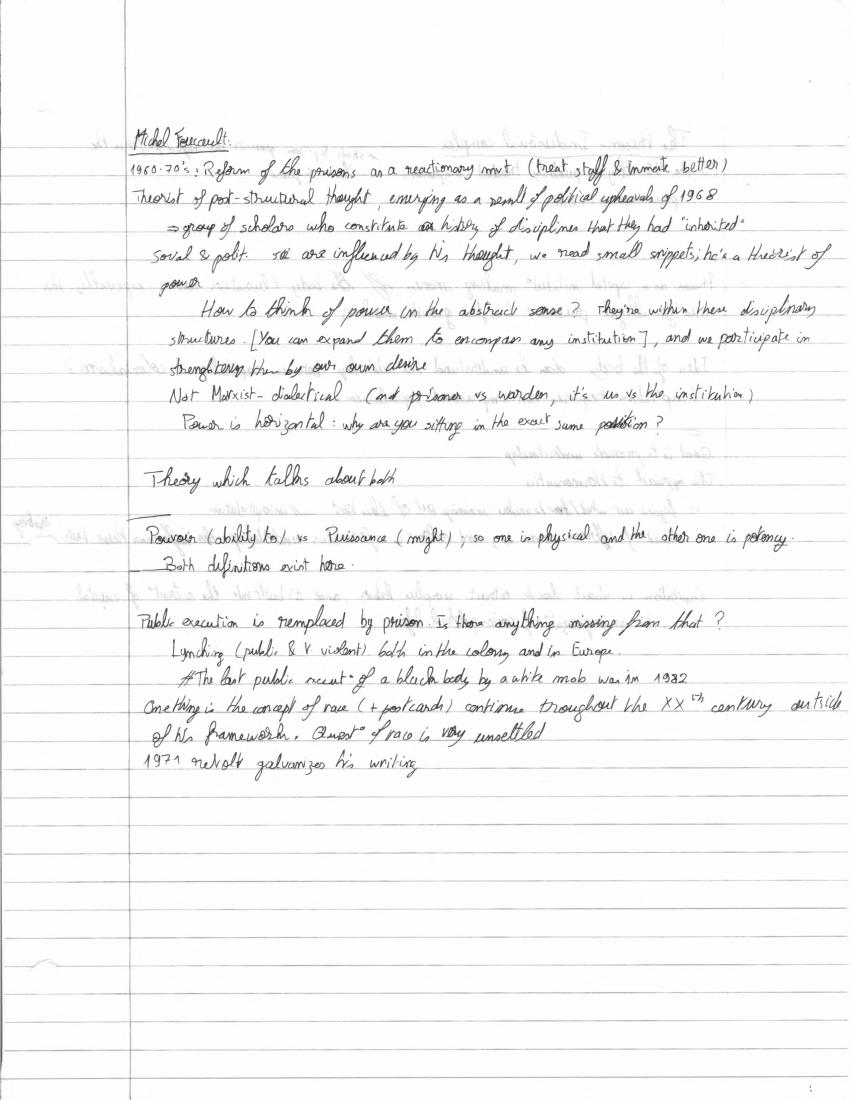 Michel Foucault:
1960-70's: Reform of the prisons as a reactionary mvt (treat staff & inmate better)
Theorist of post-structural thought, emerging as a result of political upheavals of 1968
⇒ group of scholars who constitute a history of disciplines that they had "inherited"
Social & polit. sci are influenced by his thought, we read small snippets; he's a theorist of
power
How to think of power in the abstract sense? They're within these disciplinary
structures. [You can expand them to encompass any institution], and we participate in
strenghtening them by our own desire
Not Marxist-dialectical (not prisoner vs warden, it's us vs the institution)
Power is horizontal: why are you sitting in the exact same position?
Theory which talks about both
Pouvoir (ability to) vs Puissance (might); so one is physical and the other one is potency.
Both definitions exist here.
Public execution is remplaced by prison. Is there anything missing from that?
Lynching (public & V violent) both in the colony and in Europe.
#The last public execut° of a black body by a white mob was in 1982
One thing is the concept of race (+ postcards) continue troughout the XXth century outside
of his framework. Quest° of race is very unsettled
1971 revolt galvanizes his writing